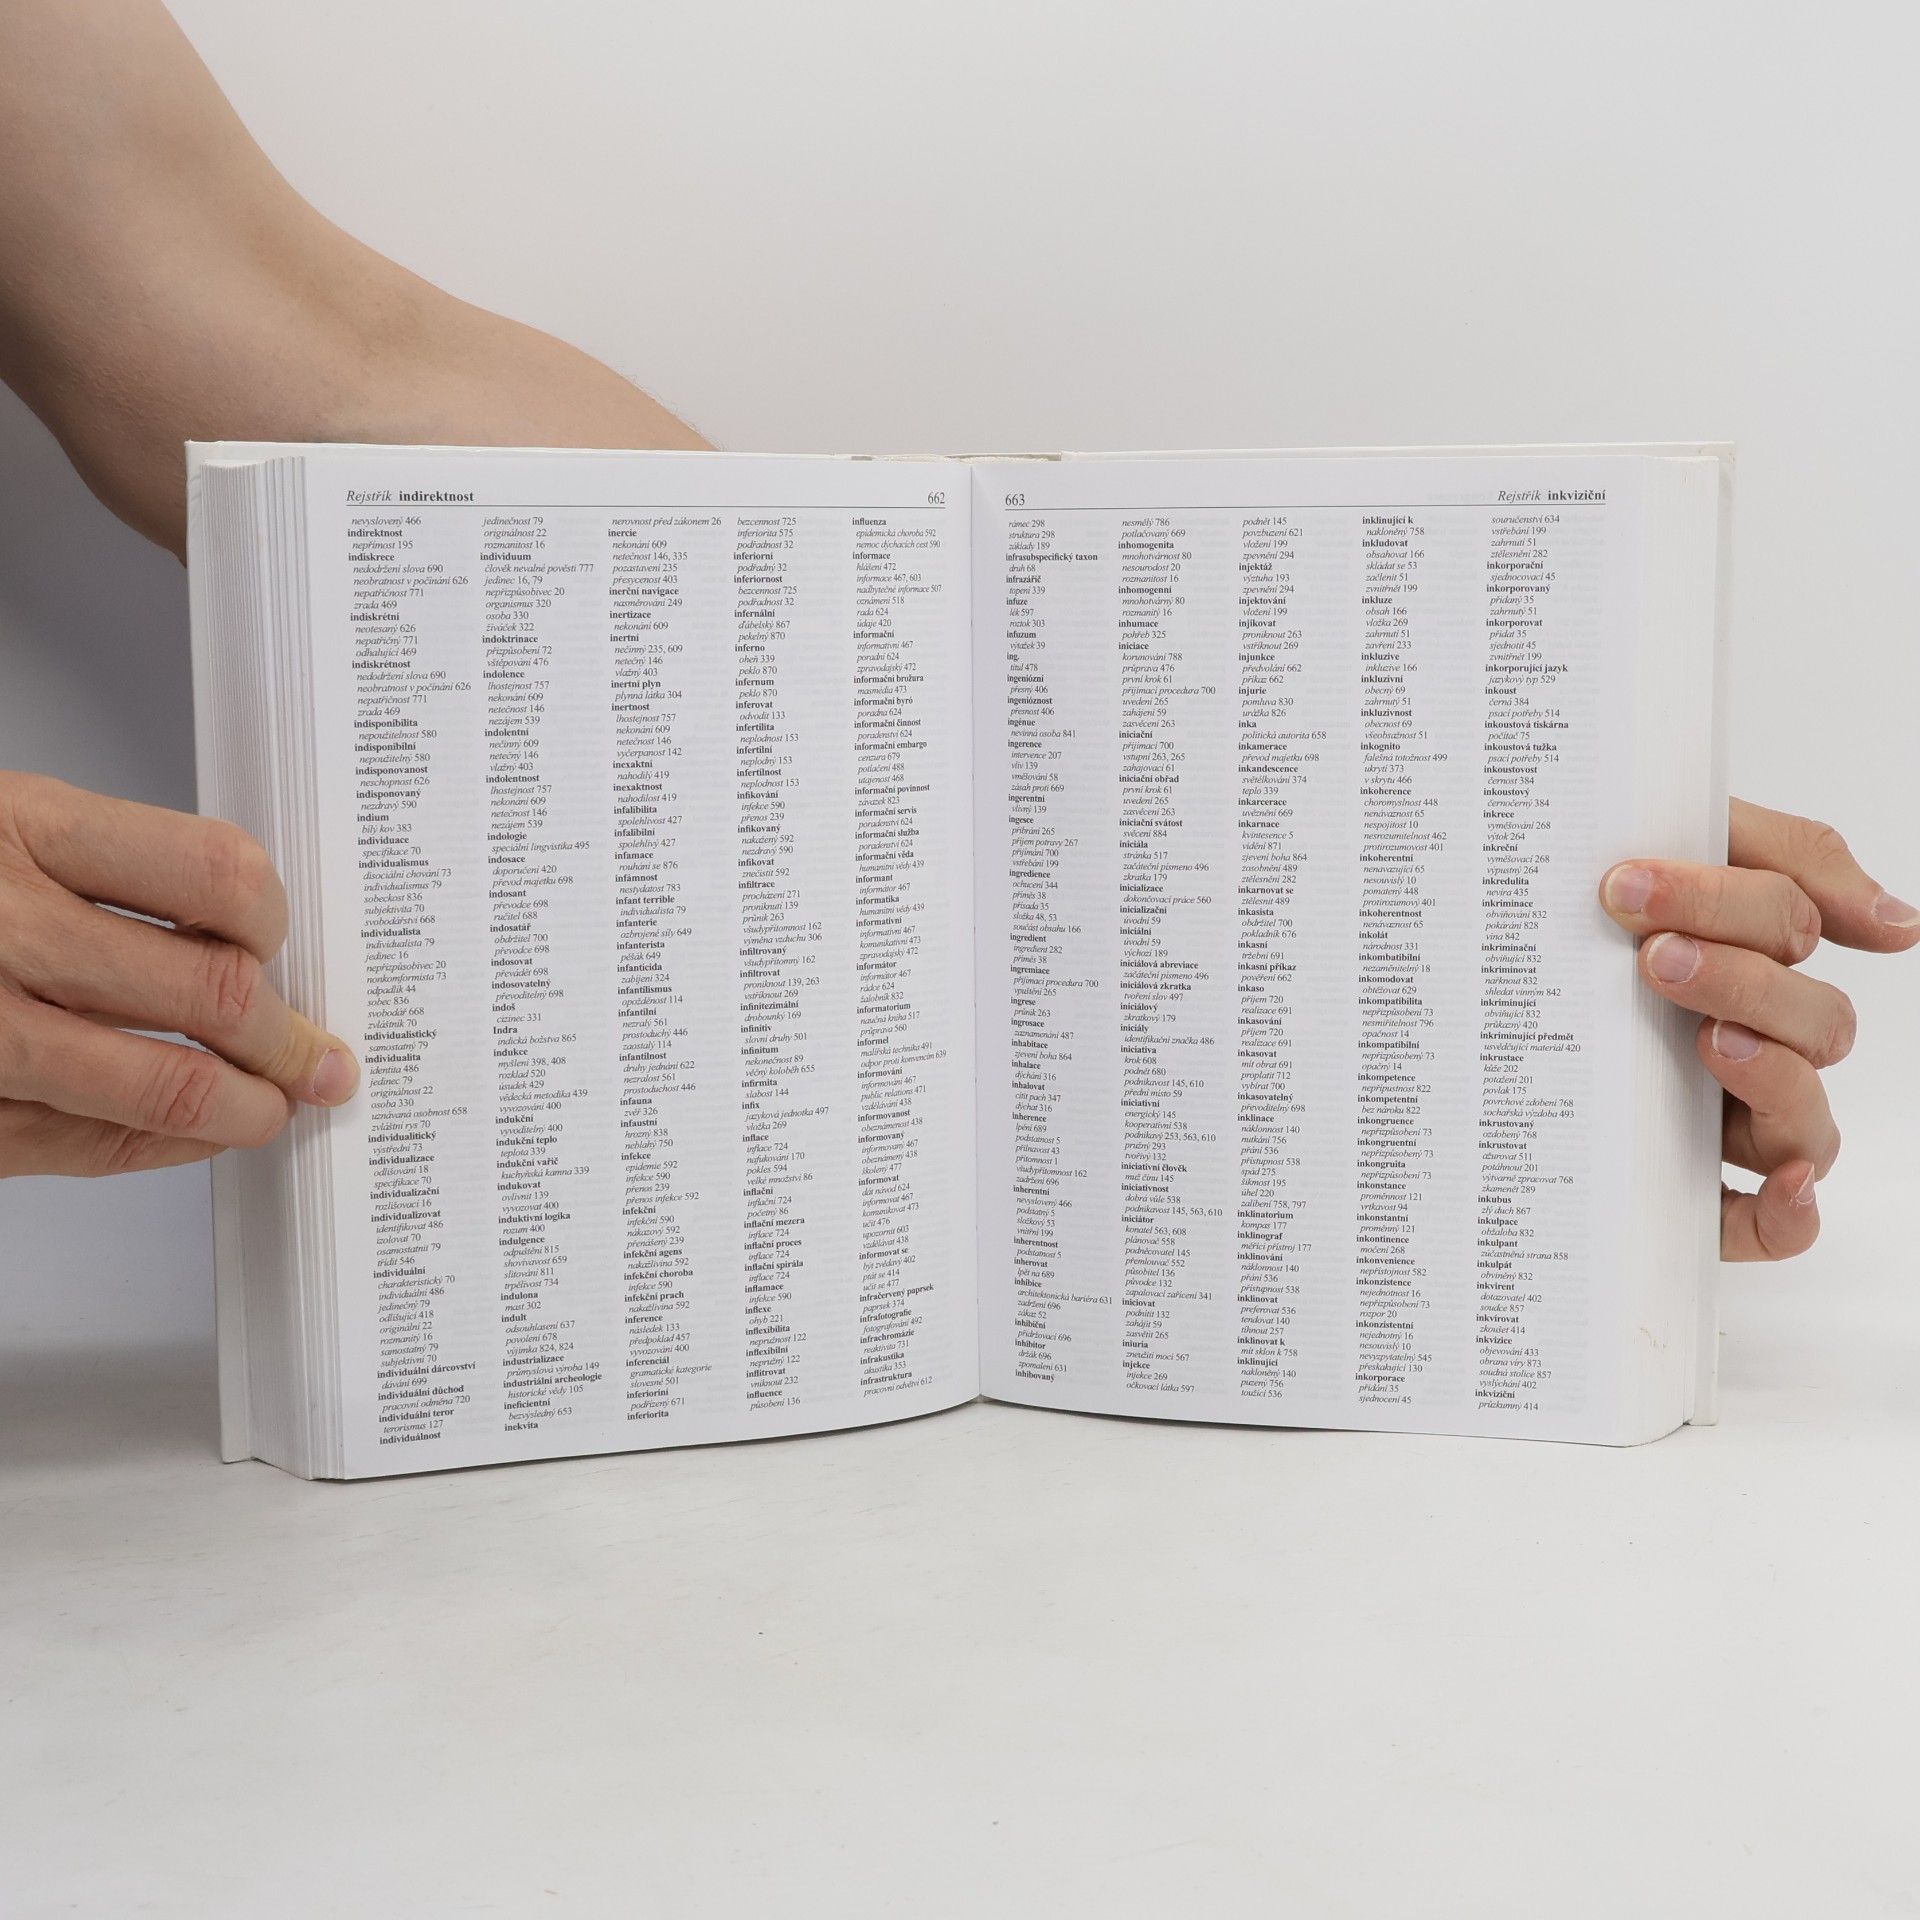 Rejstřík indirektnost
662
nevyslovený 466
indirektnost
nepřímost 195
indiskrece
nedodržení slova 690
neobratnost v počínání 626
nepatřičnost 771
zrada 469
indiskrétní
neotesaný 626
nepatřičný 771
odhalující 469
indiskrétnost
nedodržení slova 690
neobratnost v počínání 626
nepatřičnost 771
zrada 469
indisponibilita
nepoužitelnost 580
indisponibilní
nepoužitelný 580
indisponovanost
neschopnost 626
indisponovaný
nezdravý 590
indium
bílý kov 383
individuace
specifikace 70
individualismus
disociální chování 73
individualismus 79
sobeckost 836
subjektivita 70
svobodářství 668
individualista
individualista 79
jedinec 16
nepřizpůsobivec 20
nonkomformista 73
odpadlík 44
sobec 836
svobodář 668
zvláštník 70
individualistický
samostatný 79
individualita
identita 486
jedinec 79
originálnost 22
osoba 330
uznávaná osobnost 658
zvláštní rys 70
individualitický
výstřední 73
individualizace
odlišování 18
specifikace 70
individualizační
rozlišovací 16
individualizovat
identifikovat 486
izolovat 70
osamostatnit 79
třídit 546
individuální
charakteristický 70
individuální 486
jedinečný 79
odlišující 418
originální 22
rozmanitý 16
samostatný 79
subjektivní 70
individuální dárcovství
dávání 699
individuální důchod
pracovní odměna 720
individuální teror
terorismus 127
individuálnost
jedinečnost 79
originálnost 22
rozmanitost 16
individuum
člověk nevalné pověsti 777
jedinec 16, 79
nepřizpůsobivec 20
organismus 320
osoba 330
živáček 322
indoktrinace
přizpůsobení 72
vštěpování 476
indolence
lhostejnost 757
nekonání 609
netečnost 146
nezájem 539
indolentní
nečinný 609
netečný 146
vlažný 403
indolentnost
lhostejnost 757
nekonání 609
netečnost 146
nezájem 539
indologie
speciální lingvistika 495
indosace
doporučení 420
převod majetku 698
indosant
převodce 698
ručitel 688
indosatář
obdržitel 700
převodce 698
indosovat
převádět 698
indosovatelný
převoditelný 698
indoš
cizinec 331
Indra
indická božstva 865
indukce
myšlení 398, 408
rozklad 520
úsudek 429
vědecká metodika 439
vyvozování 400
indukční
vyvoditelný 400
indukční teplo
teplota 339
indukční vařič
kuchyňská kamna 339
indukovat
ovlivnit 139
vyvozovat 400
induktivní logika
rozum 400
indulgence
odpuštění 815
shovívavost 659
slitování 811
trpělivost 734
indulona
mast 302
indult
odsouhlasení 637
povolení 678
výjimka 824, 824
industrializace
průmyslová výroba 149
industriální archeologie
historické vědy 105
ineficientní
bezvýsledný 653
inekvita
nerovnost před zákonem 26
inercie
nekonání 609
netečnost 146, 335
pozastavení 235
přesycenost 403
inerční navigace
nasměrování 249
inertizace
nekonání 609
inertní
nečinný 235, 609
netečný 146
vlažný 403
inertní plyn
plynná látka 304
inertnost
lhostejnost 757
nekonání 609
netečnost 146
vyčerpanost 142
inexaktní
nahodilý 419
inexaktnost
nahodilost 419
infalibilita
spolehlivost 427
infalibilní
spolehlivý 427
infamace
rouhání se 876
infámnost
nestydatost 783
infant terrible
individualista 79
infanterie
ozbrojené síly 649
infanterista
pěšák 649
infanticida
zabijení 324
infantilismus
opožděnost 114
infantilní
nezralý 561
prostoduchý 446
zaostalý 114
infantilnost
druhy jednání 622
nezralost 561
prostoduchost 446
infauna
zvěř 326
infaustní
hrozný 838
neblahý 750
infekce
epidemie 592
infekce 590
přenos 239
přenos infekce 592
infekční
infekční 590
nákazový 592
přenášený 239
infekční agens
nakažlivina 592
infekční choroba
infekce 590
infekční prach
nakažlivina 592
inference
následek 133
předpoklad 457
vyvozování 400
inferenciál
gramatické kategorie
slovesné 501
inferioriní
podřízený 671
inferiorita
bezcennost 725
inferiorita 575
podřadnost 32
inferiorní
podřadný 32
inferiornost
bezcennost 725
podřadnost 32
infernální
ďábelský 867
pekelný 870
inferno
oheň 339
peklo 870
infernum
peklo 870
inferovat
odvodit 133
infertilita
neplodnost 153
infertilní
neplodný 153
infertilnost
neplodnost 153
infikování
infekce 590
přenos 239
infikovaný
nakažený 592
nezdravý 590
infikovat
znečistit 592
infiltrace
procházení 271
proniknutí 139
průnik 263
všudypřítomnost 162
výměna vzduchu 306
infiltrovaný
všudypřítomný 162
infiltrovat
proniknout 139, 263
vstříknout 269
infinitezimální
drobounký 169
infinitiv
slovní druhy 501
infinitum
nekonečnost 89
věčný koloběh 655
infirmita
slabost 144
infix
jazyková jednotka 497
vložka 269
inflace
inflace 724
nafukování 170
pokles 594
velké množství 86
inflační
inflační 724
početný 86
inflační mezera
inflace 724
inflační proces
inflace 724
inflační spirála
inflace 724
inflamace
infekce 590
inflexe
ohyb 221
inflexibilita
nepružnost 122
inflexibilní
nepružný 122
inflitrovat
vniknout 232
influence
působení 136
influenza
epidemická choroba 592
nemoc dýchacích cest 590
informace
hlášení 472
informace 467, 603
nadbytečné informace 507
oznámení 518
rada 624
údaje 420
informační
informativní 467
poradní 624
zpravodajský 472
informační brožura
masmédia 473
informační byró
poradna 624
informační činnost
poradenství 624
informační embargo
cenzura 679
potlačení 488
utajenost 468
informační povinnost
závazek 823
informační servis
poradenství 624
informační služba
poradenství 624
informační věda
humanitní vědy 439
informant
informátor 467
informatika
humanitní vědy 439
informativní
informativní 467
komunikativní 473
zpravodajský 472
informátor
informátor 467
rádce 624
žalobník 832
informatorium
naučná kniha 517
průprava 560
informel
malířská technika 491
odpor proti konvencím 639
informování
informování 467
public relations 471
vzdělávání 438
informovanost
obeznámenost 438
informovaný
informovaný 467
obeznámený 438
školený 477
informovat
dát návod 624
informovat 467
komunikovat 473
učit 476
upozornit 603
vzdělávat 438
informovat se
být zvědavý 402
ptát se 414
učit se 477
infračervený paprsek
paprsek 374
infrafotografie
fotografování 492
infrachromázie
reaktivita 731
infrakustika
akustika 353
infrastruktura
pracovní odvětví 612
663
Rejstřík inkviziční
rámec 298
struktura 298
základy 189
infrasubspecifický taxon
druh 68
infrazářič
topení 339
infuze
lék 597
roztok 303
infuzum
výtažek 39
ing.
titul 478
ingeniózní
přesný 406
ingenióznost
přesnost 406
ingénue
nevinná osoba 841
ingerence
intervence 207
vliv 139
vměšování 58
zásah proti 669
ingerentní
vlivný 139
ingesce
přibrání 265
příjem potravy 267
přijímání 700
vstřebání 199
ingredience
ochucení 344
příměs 38
přísada 35
složka 48, 53
součást obsahu 166
ingredient
ingredient 282
příměs 38
ingremiace
přijímací procedura 700
vpuštění 265
ingrese
průnik 263
ingrosace
zaznamenání 487
inhabitace
zjevení boha 864
inhalace
dýchání 316
inhalovat
cítit pach 347
dýchat 316
inherence
lpění 689
podstatnost 5
přilnavost 43
přítomnost 1
všudypřítomnost 162
zadržení 696
inherentní
nevyslovený 466
podstatný 5
složkový 53
vnitřní 199
inherentnost
podstatnost 5
inherovat
lpět na 689
inhibice
architektonická bariéra 631
zadržení 696
zákaz 52
inhibiční
přidržovací 696
inhibitor
držák 696
zpomalení 631
inhibovaný
nesmělý 786
potlačovaný 669
inhomogenita
mnohotvárnost 80
nesourodost 20
rozmanitost 16
inhomogenní
mnohotvárný 80
rozmanitý 16
inhumace
pohřeb 325
iniciace
korunování 788
průprava 476
první krok 61
přijímací procedura 700
uvedení 265
zahájení 59
zasvěcení 263
iniciační
přijímací 700
vstupní 263, 265
zahajovací 61
iniciační obřad
první krok 61
uvedení 265
zasvěcení 263
iniciační svátost
svěcení 884
iniciála
stránka 517
začáteční písmeno 496
zkratka 179
inicializace
dokončovací práce 560
inicializační
úvodní 59
iniciální
úvodní 59
výchozí 189
iniciálová abreviace
začáteční písmeno 496
iniciálová zkratka
tvoření slov 497
iniciálový
zkratkový 179
iniciály
identifikační značka 486
iniciativa
krok 608
podnět 680
podnikavost 145, 610
přední místo 59
iniciativní
energický 145
kooperativní 538
podnikavý 253, 563, 610
pružný 293
tvořivý 132
iniciativní člověk
muž činu 145
iniciativnost
dobrá vůle 538
podnikavost 145, 563, 610
iniciátor
konatel 563, 608
plánovač 558
podněcovatel 145
přemlouvač 552
působitel 136
původce 132
zapalovací zařízení 341
iniciovat
podnítit 132
zahájit 59
zasvětit 265
iniuria
zneužití moci 567
injekce
injekce 269
očkovací látka 597
podnět 145
povzbuzení 621
vložení 199
zpevnění 294
injektáž
výztuha 193
zpevnění 294
injektování
vložení 199
injikovat
proniknout 263
vstříknout 269
injunkce
předvolání 662
příkaz 662
injurie
pomluva 830
urážka 826
inka
politická autorita 658
inkamerace
převod majetku 698
inkandescence
světélkování 374
teplo 339
inkarcerace
uvěznění 669
inkarnace
kvintesence 5
vidění 871
zjevení boha 864
zosobnění 489
ztělesnění 282
inkarnovat se
ztělesnit 489
inkasista
obdržitel 700
pokladník 676
inkasní
tržební 691
inkasní příkaz
pověření 662
inkaso
příjem 720
realizace 691
inkasování
příjem 720
realizace 691
inkasovat
mít obrat 691
proplatit 712
vybírat 700
inkasovatelný
převoditelný 698
inklinace
náklonnost 140
nutkání 756
přání 536
přístupnost 538
spád 275
šikmost 195
úhel 220
zalíbení 758, 797
inklinatorium
kompas 177
inklinograf
měřící přístroj 177
inklinování
náklonnost 140
přání 536
přístupnost 538
inklinovat
preferovat 536
tendovat 140
tíhnout 257
inklinovat k
mít sklon k 758
inklinující
nakloněný 140
puzený 756
toužící 536
inklinující k
nakloněný 758
inkludovat
obsahovat 166
skládat se 53
začlenit 51
zvnitřnět 199
inkluze
obsah 166
vložka 269
zahrnutí 51
zavření 233
inkluzive
inkluzive 166
inkluzivní
obecný 69
zahrnutý 51
inkluzivnost
obecnost 69
všeobsažnost 51
inkognito
falešná totožnost 499
ukrytí 373
v skrytu 466
inkoherence
choromyslnost 448
nenávaznost 65
nespojitost 10
nesrozumitelnost 462
protirozumovost 401
inkoherentní
nenavazující 65
nesouvislý 10
pomatený 448
protirozumový 401
inkoherentnost
nenávaznost 65
inkolát
národnost 331
inkombatibilní
nezaměnitelný 18
inkomodovat
obtěžovat 629
inkompatibilita
nepřizpůsobení 73
nesmiřitelnost 796
opačnost 14
inkompatibilní
nepřizpůsobený 73
opačný 14
inkompetence
nepřípustnost 822
inkompetentní
bez nároku 822
inkongruence
nepřizpůsobení 73
inkongruentní
nepřizpůsobený 73
inkongruita
nepřizpůsobení 73
inkonstance
proměnnost 121
vrtkavost 94
inkonstantní
proměnný 121
inkontinence
močení 268
inkonvenience
nepřístojnost 582
inkonzistence
nejednotnost 16
nepřizpůsobení 73
rozpor 20
inkonzistentní
nejednotný 16
nesouvislý 10
nevyzpytatelný 545
přeskakující 130
inkorporace
přidání 35
sjednocení 45
souručenství 634
vstřebání 199
zahrnutí 51
ztělesnění 282
inkorporační
sjednocovací 45
inkorporovaný
přidaný 35
zahrnutý 51
inkorporovat
přidat 35
sjednotit 45
zvnitřnět 199
inkorporující jazyk
jazykový typ 529
inkoust
černá 384
psací potřeby 514
inkoustová tiskárna
počítač 75
inkoustová tužka
psací potřeby 514
inkoustovost
černost 384
inkoustový
černočerný 384
inkrece
vyměšování 268
výtok 264
inkreční
vyměšovací 268
výpustný 264
inkredulita
nevíra 435
inkriminace
obviňování 832
pokárání 828
vina 842
inkriminační
obviňující 832
inkriminovat
nařknout 832
shledat vinným 842
inkriminující
obviňující 832
průkazný 420
inkriminující předmět
usvědčující materiál 420
inkrustace
kůže 202
potažení 201
povlak 175
povrchové zdobení 768
sochařská výzdoba 493
inkrustovaný
ozdobený 768
inkrustovat
ažurovat 511
potáhnout 201
výtvarně zpracovat 768
zkamenět 289
inkubus
zlý duch 867
inkulpace
obžaloba 832
inkulpant
zúčastněná strana 858
inkulpát
obviněný 832
inkvirent
dotazovatel 402
soudce 857
inkvírovat
zkoušet 414
inkvizice
objevování 433
obrana víry 873
soudní stolice 857
vyslýchání 402
inkviziční
průzkumný 414